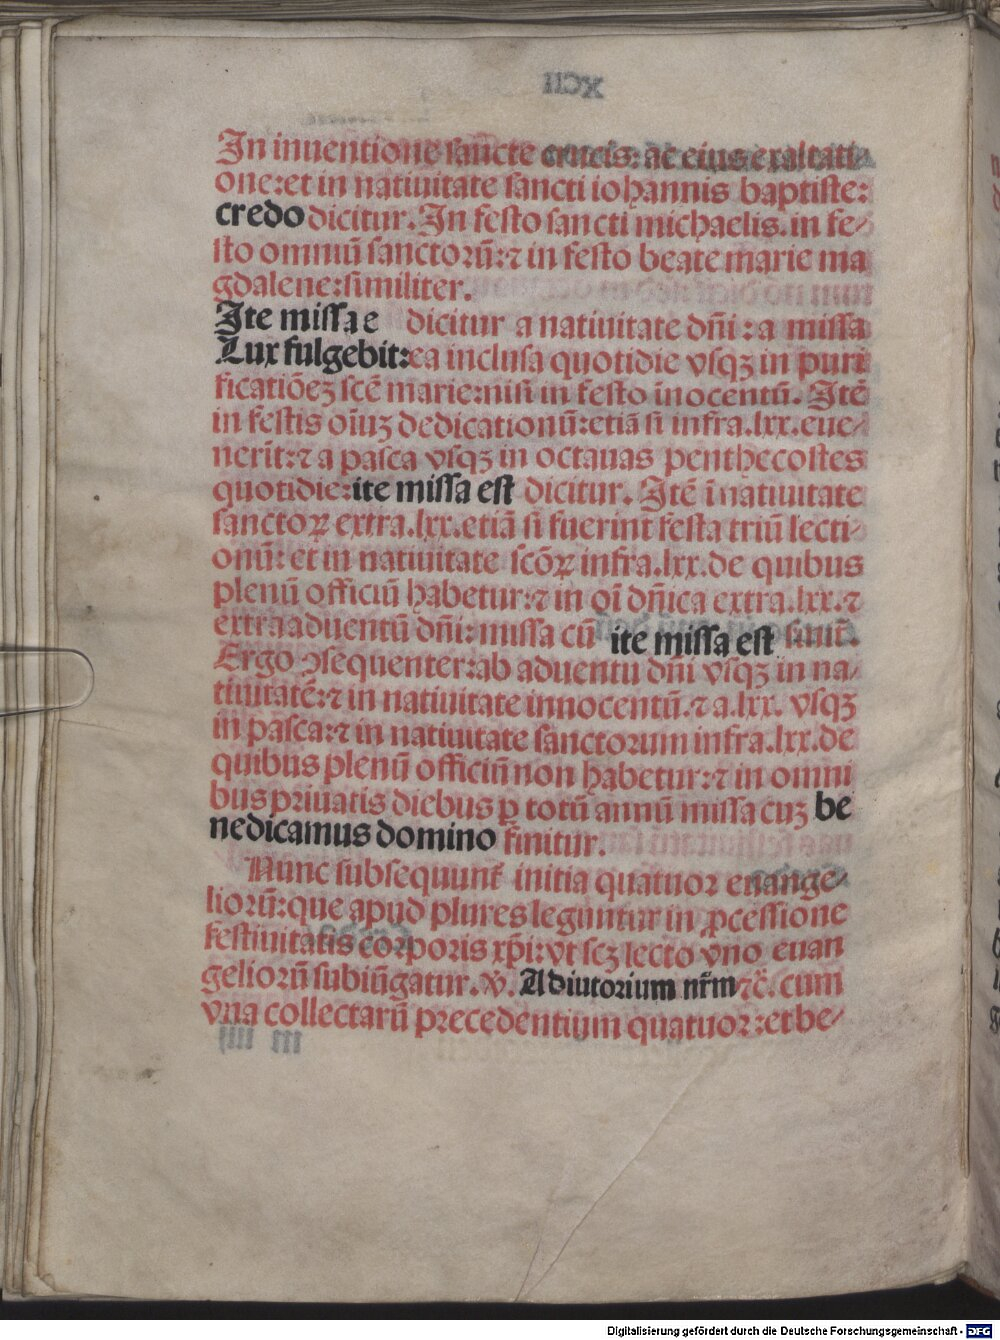 In inuentione sancte crucis: ac eius exaltati
one: et in natiuitate sancti iohannis baptiste:
credo dicitur. In festo sancti michaelis. in fe-
sto omniū sanctorū: ⁊ in festo beate marie ma
gdalene: similiter.
Ite missa e dicitur a natiuitate dñi: a missa
Lux fulgebit: ea inclusa quotidie vsqꝫ in puri
ficatiōeꝫ scē marie: nisi in festo īnocentū. Itē
in festis oīuꝫ dedicationū: etiā si infra .lxx. eue-
nerīt: ⁊ a pasca vsqꝫ in octauas penthecostes
quotidie: ite missa est dicitur. Itē ī natiuitate
sanctoꝝ extra .lxx. etiā si fuerint festa triū lecti-
onū: et in natiuitate scōꝝ infra .lxx. de quibus
plenū officiū habetur: ⁊ in oī dñica extra .lxx. ⁊
extra aduentū dñi: missa cū ite missa est finit᷑.
Ergo ꝯsequenter: ab aduentu dñi vsqꝫ in na-
tiuitatē: ⁊ in natiuitate innocentū. ⁊ a .lxx. vsqꝫ
in pasca: ⁊ in natiuitate sanctorum infra .lxx. de
quibus plenū officiū non habetur: ⁊ in omni
bus priuatis diebus ꝑ totū annū missa cuꝫ be
nedicamus domino finitur.
Nunc subsequunt᷑ initia quatuor euange-
liorū: que apud plures leguntur in ꝓcessione
festiuitatis corporis xp̄i: vt scꝫ lecto vno euan
geliorū subiūgatur. ℣. Adiutorium nr̄m ⁊c̄. cum
vna collectarū precedentium quatuor: et be-
XCII
m iiij
Digitalisierung gefördert durch die Deutsche Forschungsgemeinschaft - DFG